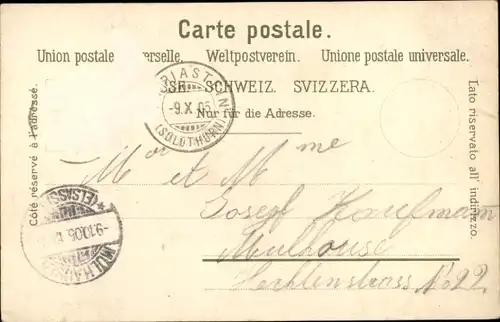 Carte postale.
Union postale verselle. Weltpostverein. Unione postale universale.
SSE. SCHWEIZ. SVIZZERA.
Nur für die Adresse.
Côté réservé à l'adresse.
Lato riservato all'indirizzo.
-9.X.05
(SOLOTHURN)
(ELSASS)
-9.10.05
MÜLHAUSEN
Mor et Mme
Josef Kaufmann
Mulhouse
No 22